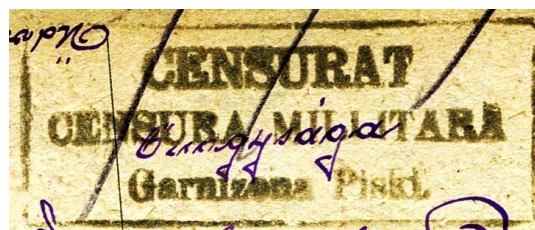 CENSURAT
CENSURA MILITARĂ
Őnagysága
Garnizona Piski.